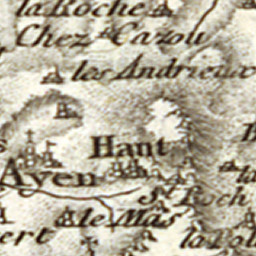 la Roche
Chez Cazou
les Andrieux
Hant
Ayen
St Roch
la
le Mas
bert
la Pol